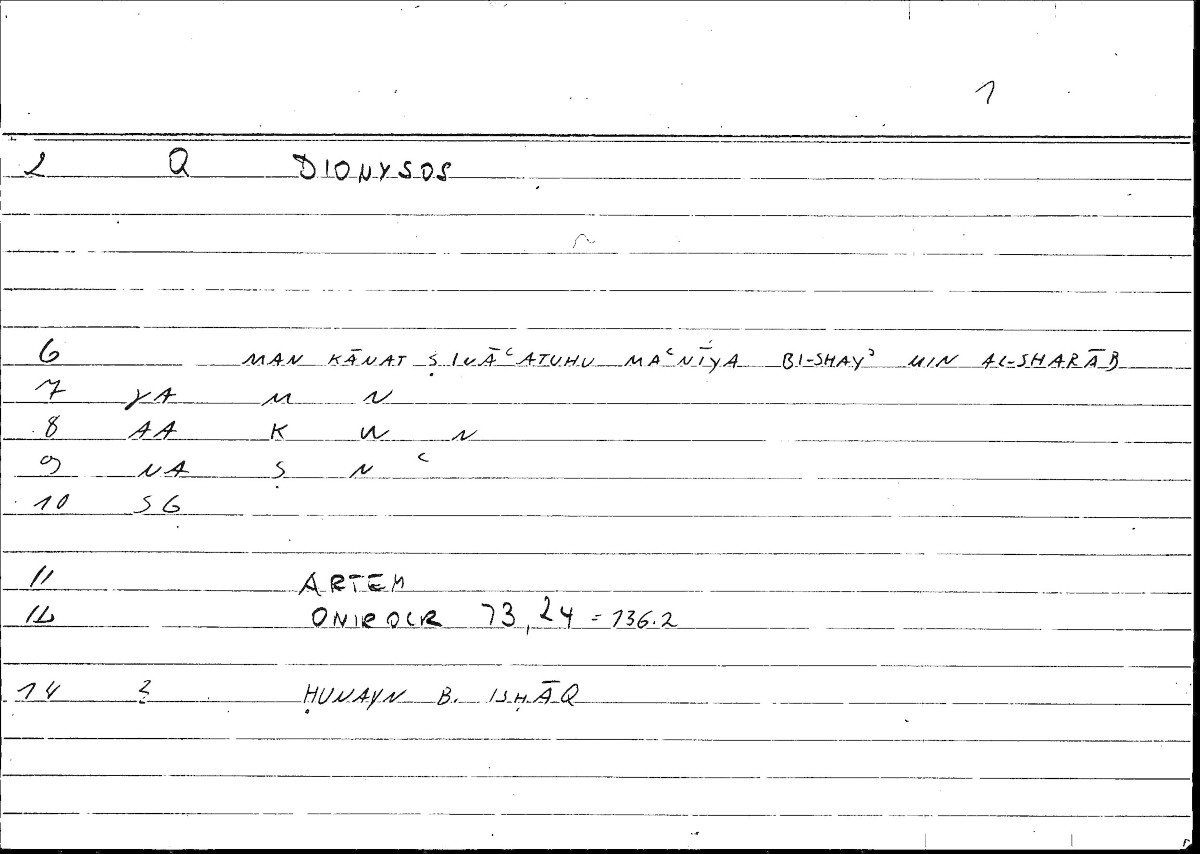 1
2 Q DIONYSOS
6 MAN KĀNAT ṢINĀʿATUHU MAʿNĪYA BI-SHAYʾ MIN AL-SHARĀB
7 YA M N
8 AA K W N
9 NA Ṣ N ʿ
10 SG
11 ARTEM
12 ONIROCR 73,24 = 136.2
14 2 ḤUNAYN B. ISḤĀQ